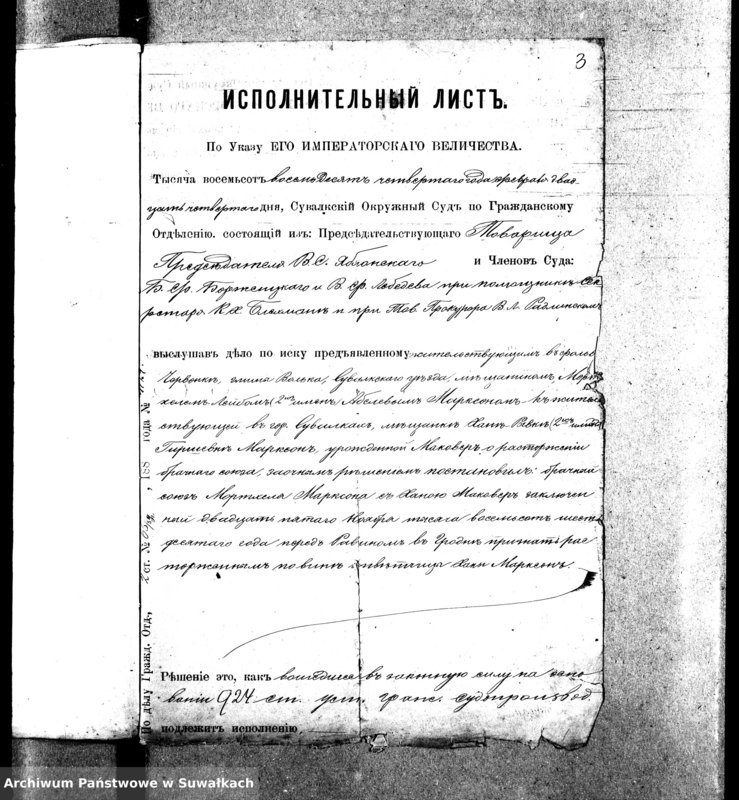 3
ИСПОЛНИТЕЛЬНЫЙ ЛИСТЪ.
По Указу ЕГО ИМПЕРАТОРСКАГО ВЕЛИЧЕСТВА.
Тысяча восемьсотъ восемьдесятъ четвертаго года февраля двад-
цать четвертаго дня, Сувалкскій Окружный Судъ по Гражданскому
Отдѣленію. состоящій изъ: Предсѣдательствующаго Товарища
Предсѣдателя В.С. Яблонскаго и Членовъ Суда:
и В. Ф. Лебедева при помощникѣ Сек-
ретаря К. Х. и при Тов. Прокурора В. Л.
выслушавъ дѣло по иску предъявленному жительствующимъ въ
гмина Волька, Сувалкскаго уѣзда, мѣщаниномъ
Лейбомъ (2хъ именъ) Абелевымъ Марксономъ къ житель-
ствующей въ гор. Сувалкахъ, мѣщанкѣ Ханѣ (2хъ именъ)
Гиршевнѣ Марксонъ, урожденной Маковеръ о расторженіи
брачнаго союза, заочнымъ рѣшеніемъ постановилъ: брачный
союзъ Марксона съ Ханою Маковеръ заключен-
ный двадцать пятаго Ноября тысяча восемьсотъ шести-
десятаго года передъ Равиномъ въ Гроднѣ признать рас-
торженнымъ по винѣ отвѣтчицы Ханы Марксонъ.
Рѣшеніе это, какъ вошедшее въ законную силу на осно-
ваніи 924 ст. уст. гражд. судопроизвод.
подлежитъ исполненію
По дѣлу Гражд. Отд., ст. №, 188 года №
Archiwum Państwowe w Suwałkach